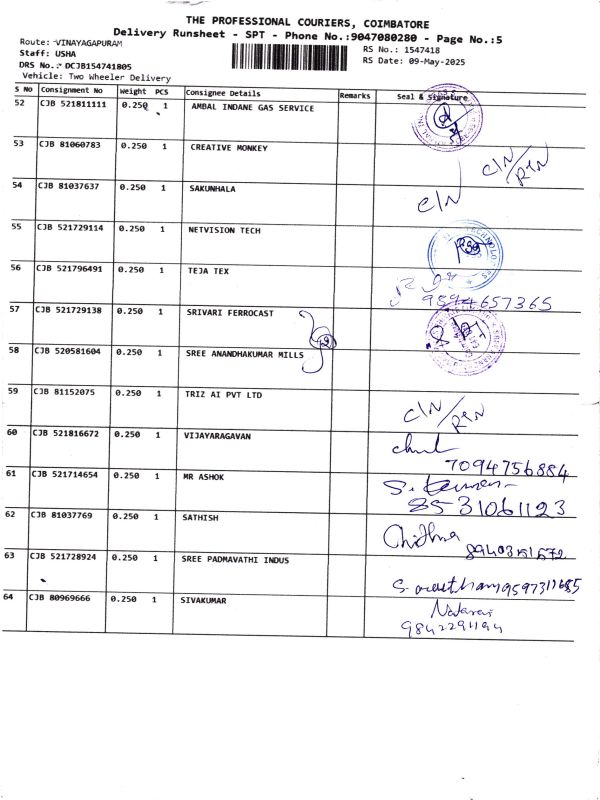 THE PROFESSIONAL COURIERS, COIMBATORE
Delivery Runsheet - SPT - Phone No.:9047080280 - Page No.:5
Route: VINAYAGAPURAM
Staff: USHA
DRS No.: DCJB154741805
Vehicle: Two Wheeler Delivery
RS No.: 1547418
RS Date: 09-May-2025
S No Consignment No Weight PCS Consignee Details Remarks Seal & Signature
52 CJB 521811111 0.250 1 AMBAL INDANE GAS SERVICE
53 CJB 81060783 0.250 1 CREATIVE MONKEY C/N/RTN
54 CJB 81037637 0.250 1 SAKUNHALA C/N
55 CJB 521729114 0.250 1 NETVISION TECH
56 CJB 521796491 0.250 1 TEJA TEX 9894657365
57 CJB 521729138 0.250 1 SRIVARI FERROCAST
58 CJB 520581604 0.250 1 SREE ANANDHAKUMAR MILLS
59 CJB 81152075 0.250 1 TRIZ AI PVT LTD C/N/RTN
60 CJB 521816672 0.250 1 VIJAYARAGAVAN 7094756884
61 CJB 521714654 0.250 1 MR ASHOK 8531061123
62 CJB 81037769 0.250 1 SATHISH Chithra
63 CJB 521728924 0.250 1 SREE PADMAVATHI INDUS
64 CJB 80969666 0.250 1 SIVAKUMAR 9842291194